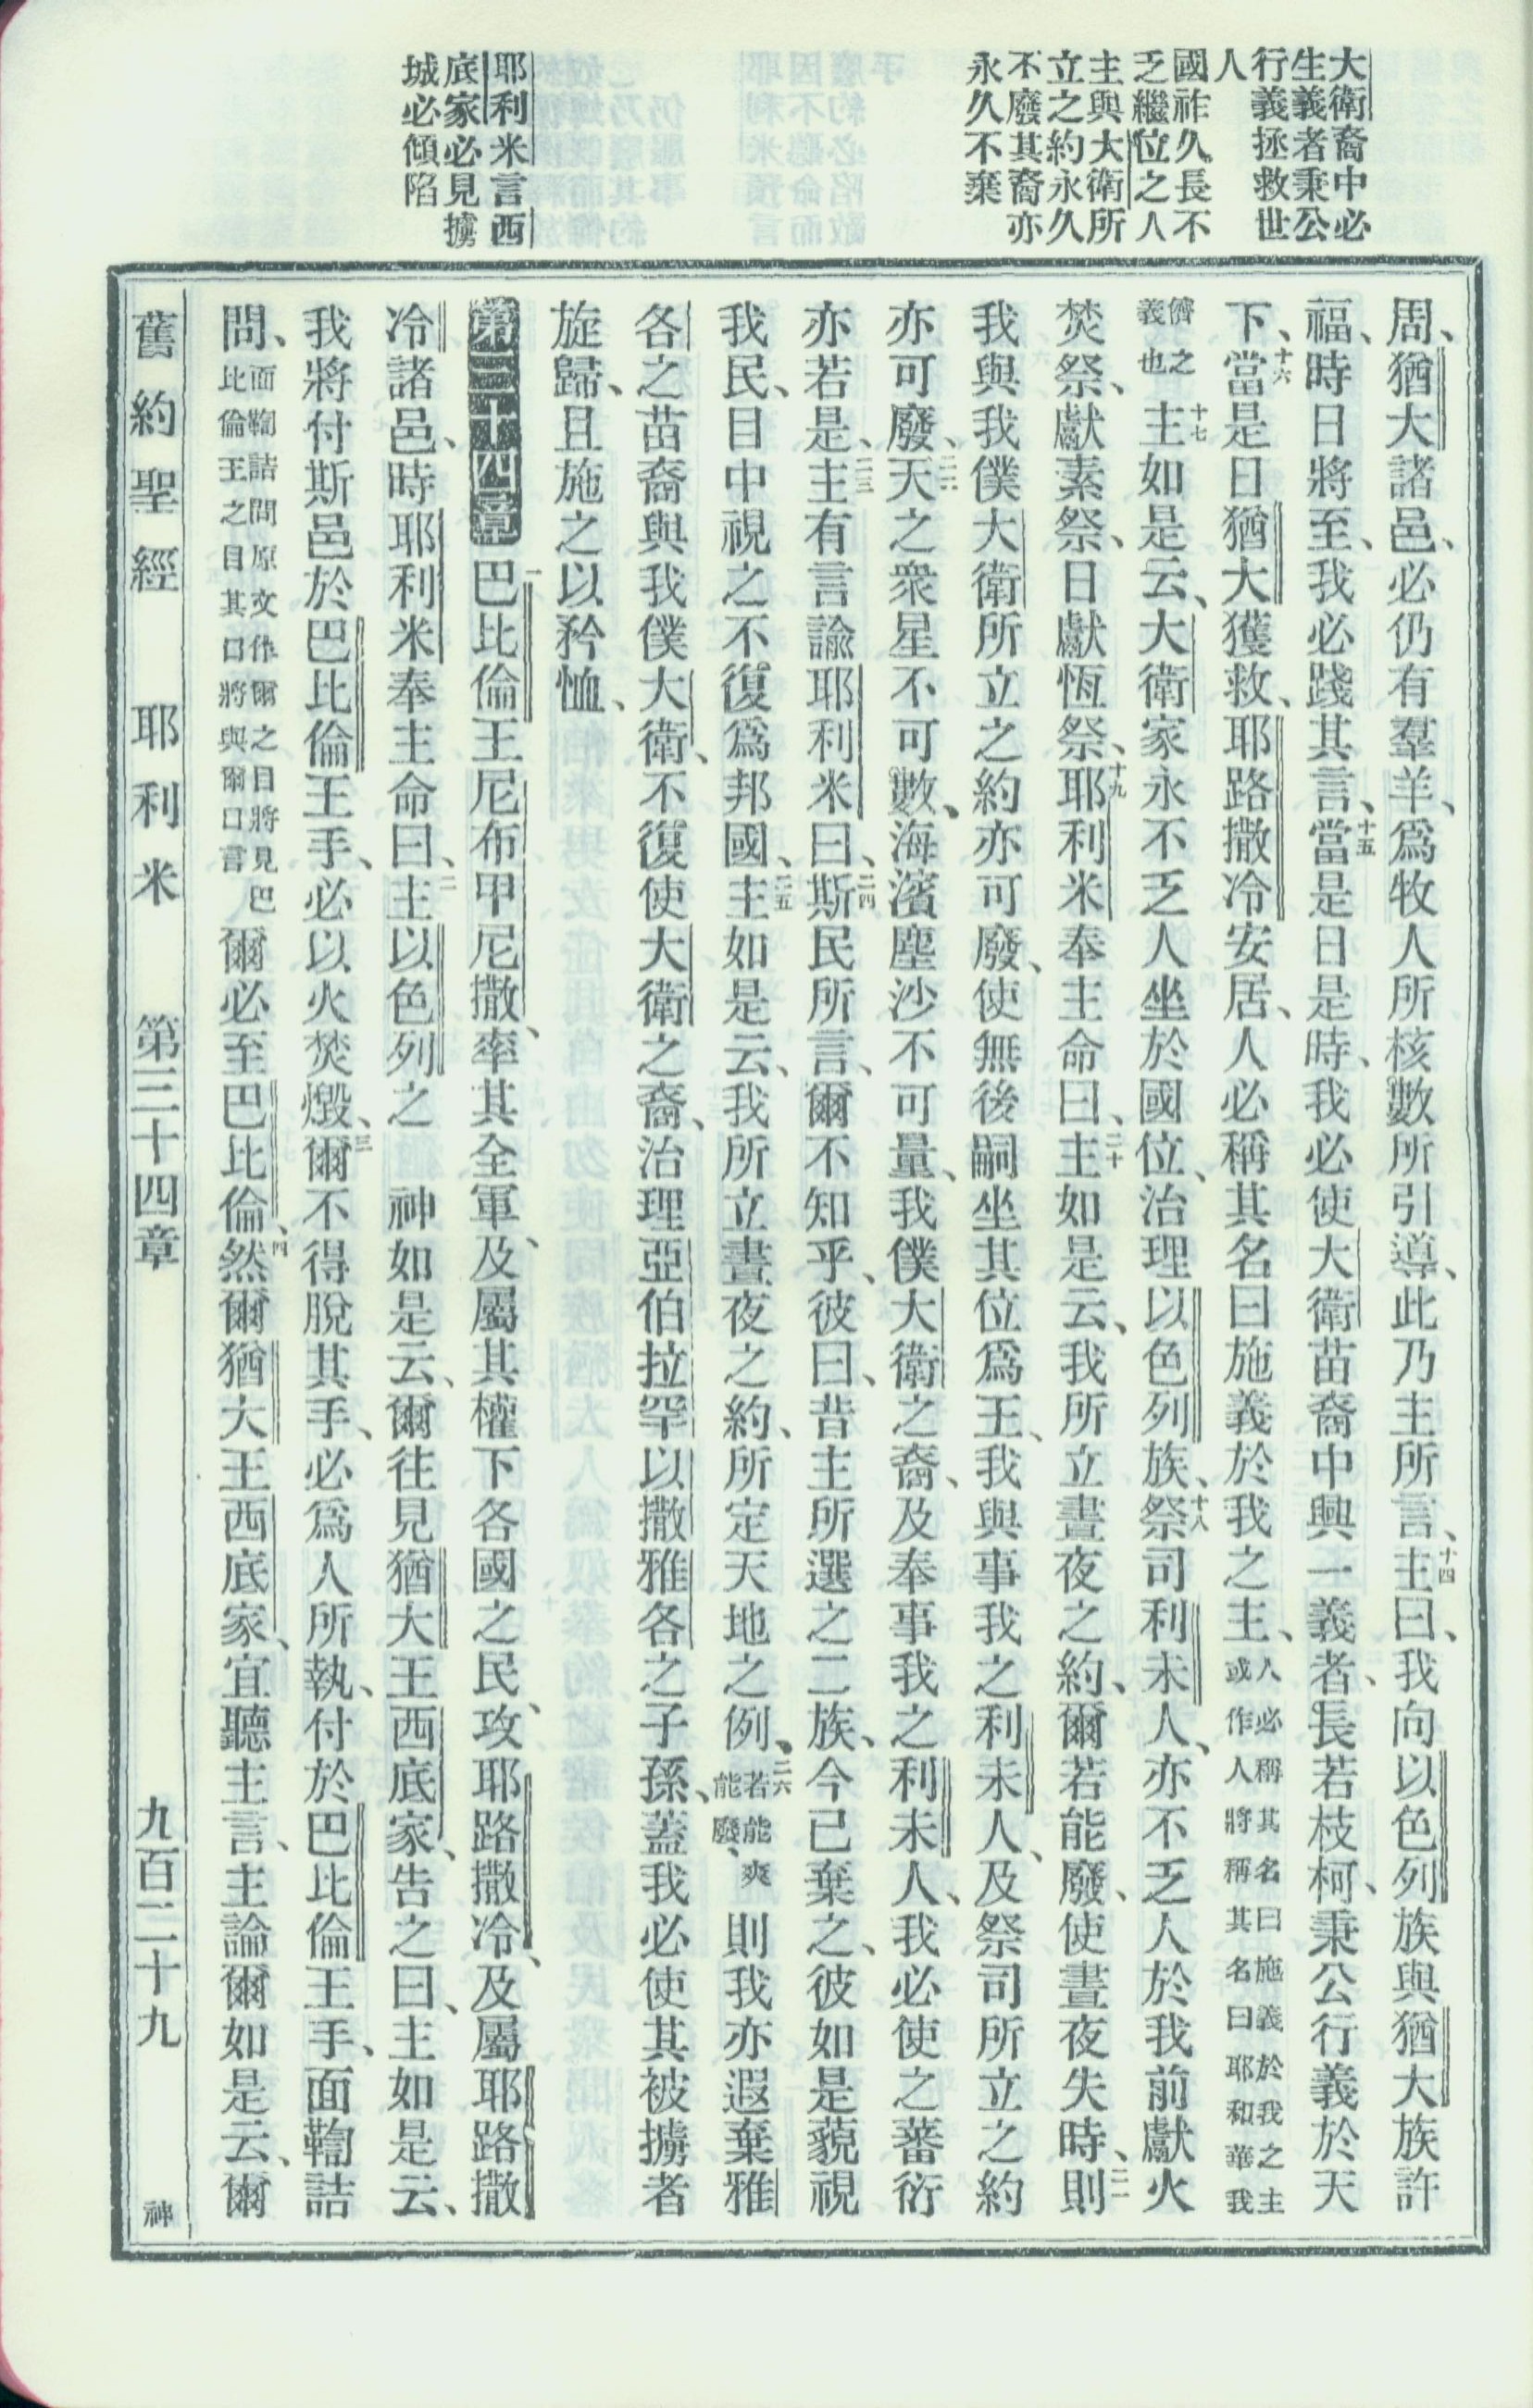 大衛裔中必
生義者秉公
行義拯救世
人
國祚久長不
乏繼位之人
主與大衛所
立之約永久
不廢其裔亦
永久不棄
耶利米言西
底家必見擄
城必傾陷
周、猶大諸邑、必仍有羣羊、爲牧人所核數所引導、此乃主所言、十四主曰、我向以色列族與猶大族許
福、時日將至、我必踐其言、十五當是日是時、我必使大衛苗裔中興一義者、長若枝柯、秉公行義於天
下、十六當是日猶大獲救、耶路撒冷安居、人必稱其名曰施義於我之主、人必稱其名曰施義於我之主或作人將稱其名曰耶和華我
儕之義也十七主如是云、大衛家永不乏人坐於國位、治理以色列族、十八祭司利未人、亦不乏人於我前獻火
焚祭、獻素祭、日獻恆祭、十九耶利米奉主命曰、二十主如是云、我所立晝夜之約、爾若能廢、使晝夜失時、二一則
我與我僕大衛所立之約亦可廢、使無後嗣坐其位爲王、我與事我之利未人、及祭司所立之約
亦可廢、二二天之衆星不可數、海濱塵沙不可量、我僕大衛之裔、及奉事我之利未人、我必使之蕃衍
亦若是、二三主有言諭耶利米曰、二四斯民所言、爾不知乎、彼曰、昔主所選之二族、今已棄之、彼如是藐視
我民、目中視之不復爲邦國、二五主如是云、我所立晝夜之約、所定天地之例、二六若能爽能廢、則我亦遐棄雅
各之苗裔與我僕大衛、不復使大衛之裔、治理亞伯拉罕以撒雅各之子孫、蓋我必使其被擄者
旋歸、且施之以矜恤、
第三十四章 一巴比倫王尼布甲尼撒、率其全軍、及屬其權下各國之民、攻耶路撒冷、及屬耶路撒
冷諸邑、時耶利米奉主命曰、二主以色列之 神如是云、爾往見猶大王西底家、告之曰、主如是云、
我將付斯邑於巴比倫王手、必以火焚燬、三爾不得脫其手、必爲人所執、付於巴比倫王手、面鞫詰
問、面鞫詰問原文作爾之目將見巴比倫王之目其口將與爾口言爾必至巴比倫、四然爾猶大王西底家、宜聽主言、主論爾如是云、爾
舊約聖經 耶利米 第三十四章 九百二十九 神